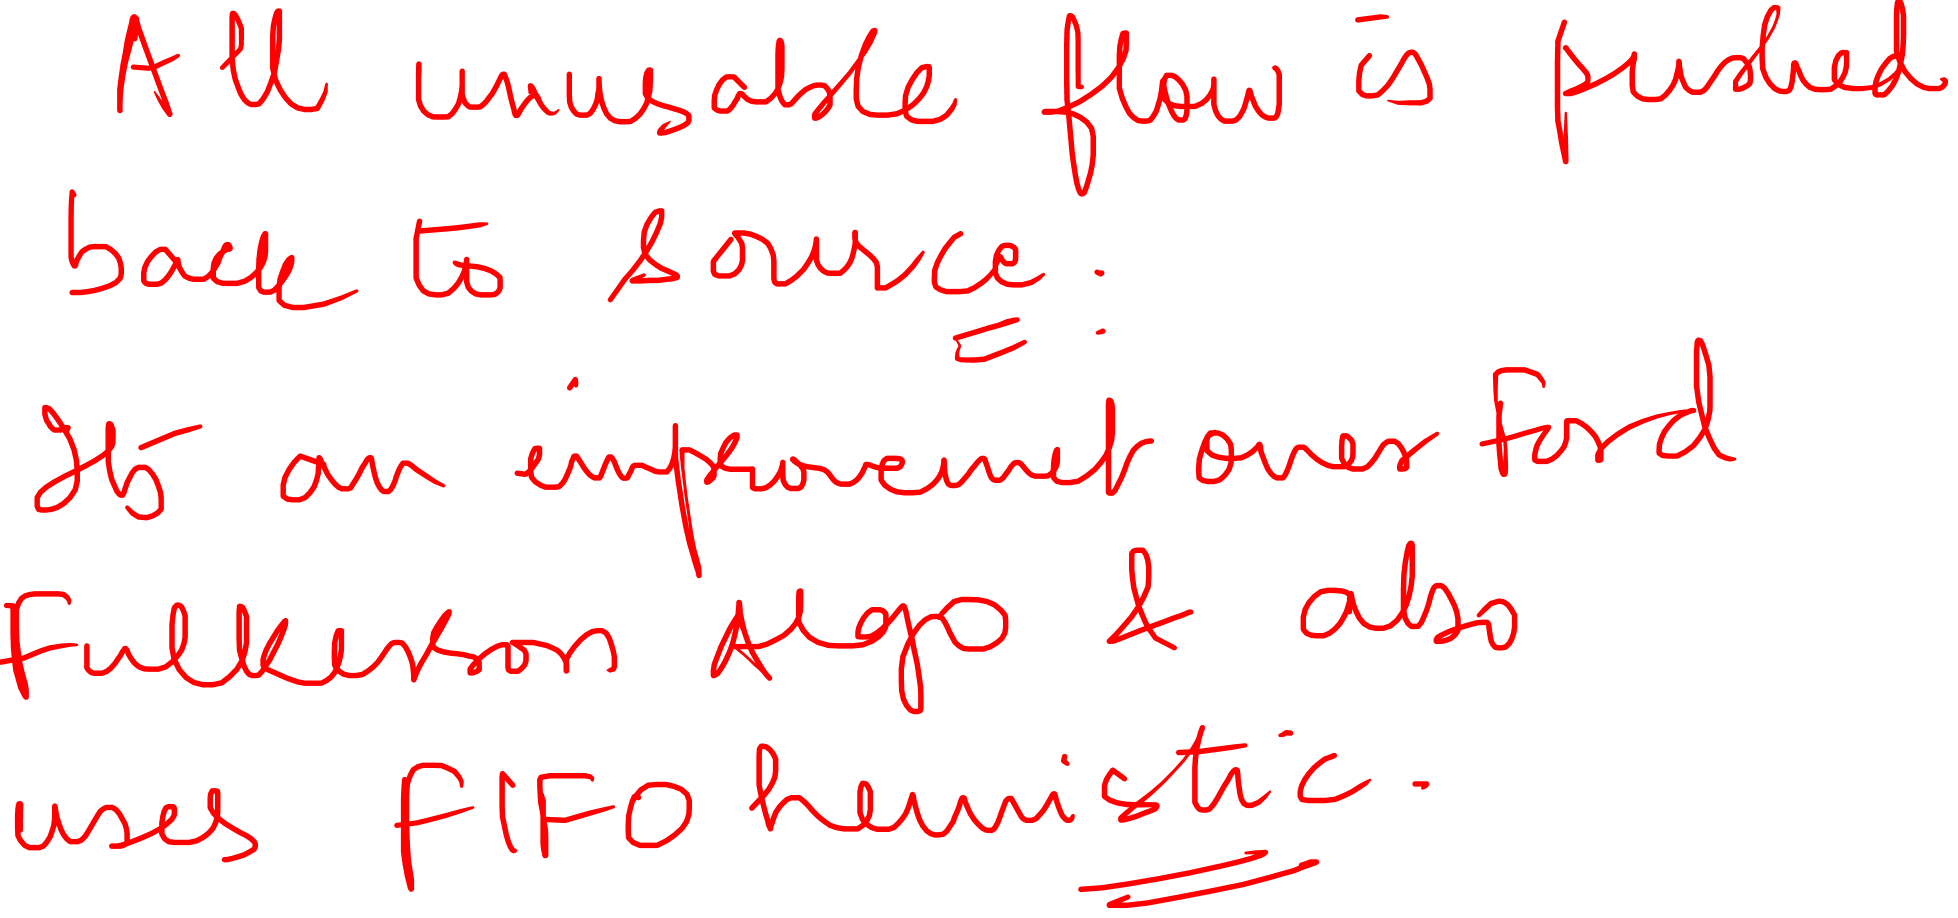 All unusable flow is pushed
back to source.
Its an improvemet over Ford
Fulkerson Algo & also
uses FIFO heuristic.